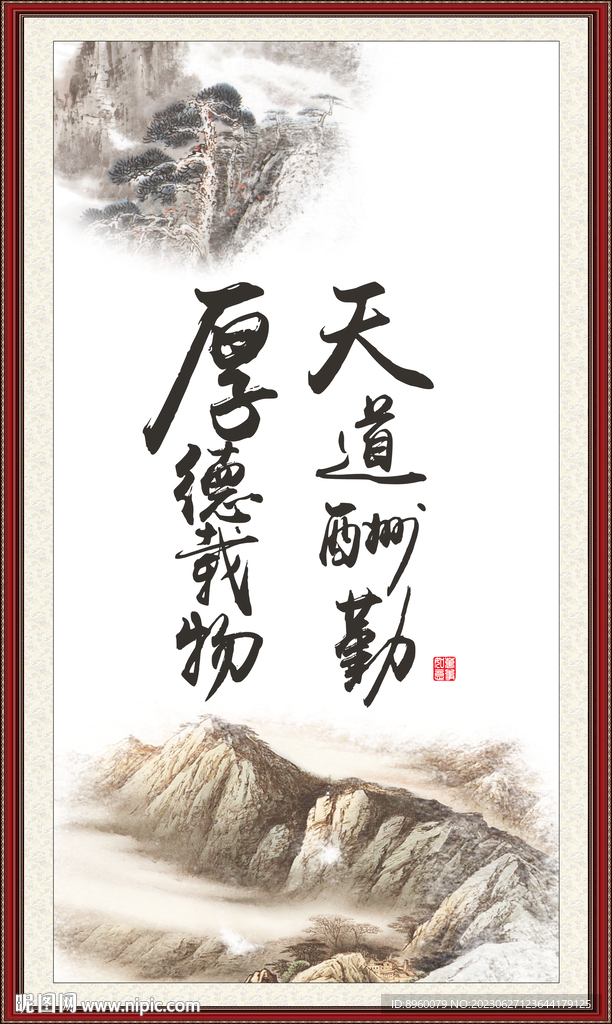 天道酬勤
厚德载物
昵图网 www.nipic.com
ID:8960079 NO:20230627123644179125